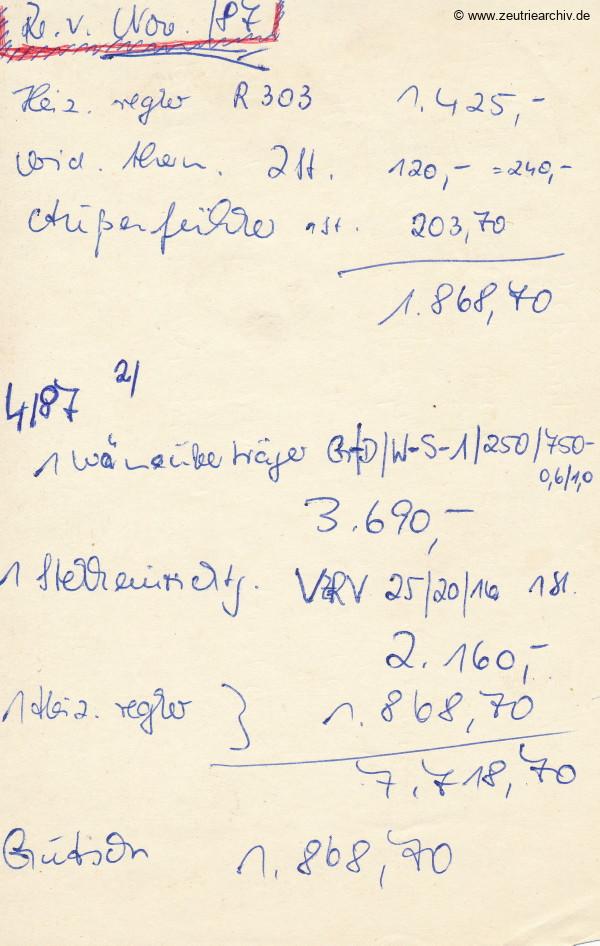 © www.zeutriearchiv.de
Re. v. Nov. /87
Heiz. regler R 303 1.425,-
Wid. therm. 2 St. 120,- = 240,-
Außenfühler 1 St. 203,70
1.868,70
4/87 2/
1 Wärmeüberträger W-S-1/250/750-
0,6/1,0
3.690,-
1 Stelleinrichtg. 25/20/16 1 St.
2.160,-
1 Heiz. regler } 1.868,70
7.718,70
1.868,70